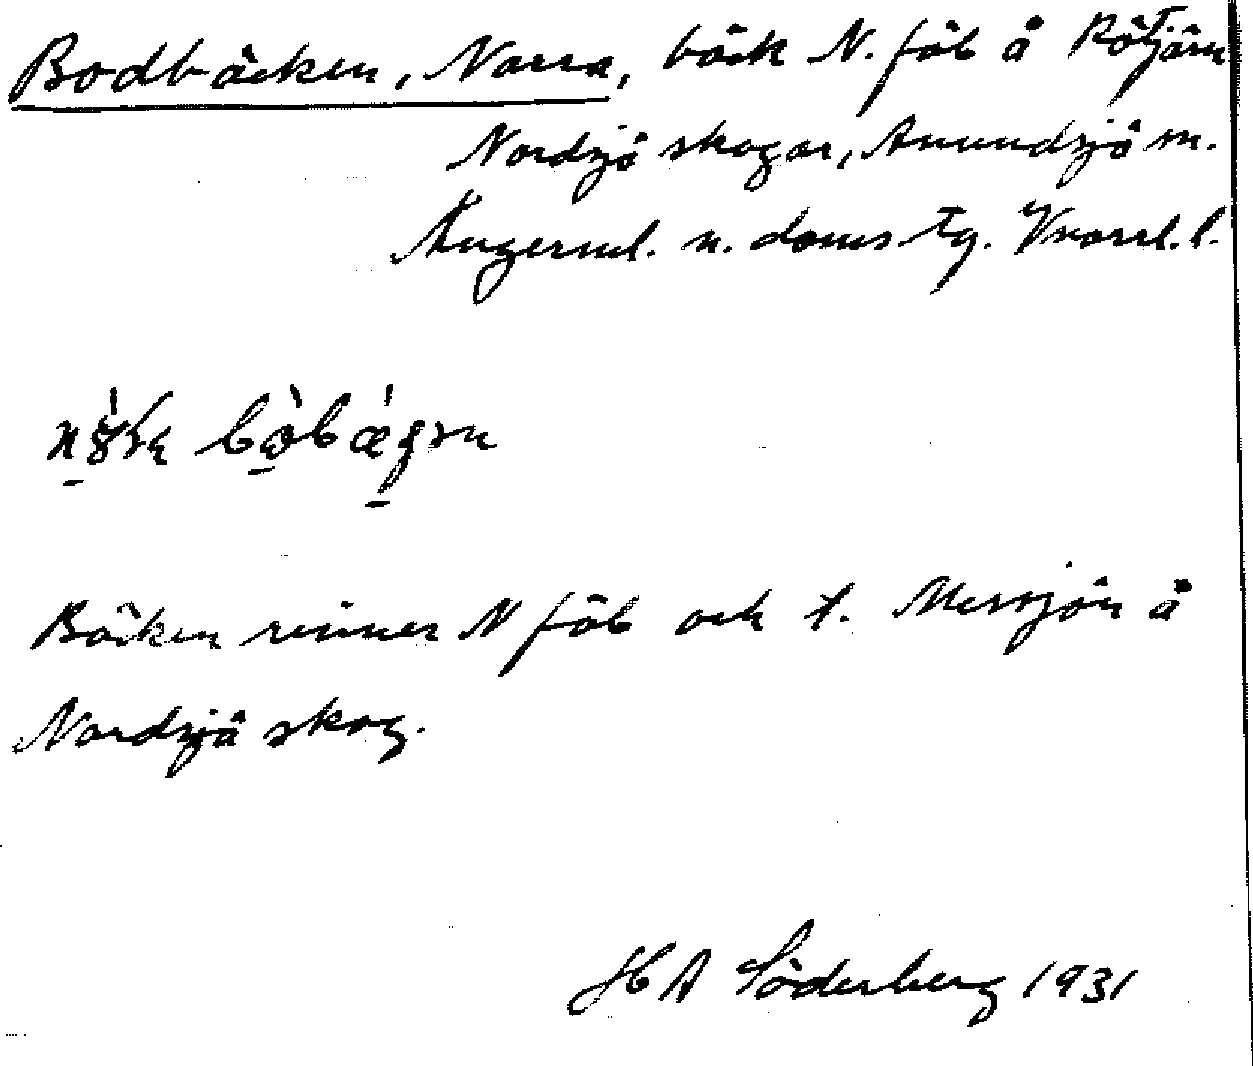 Bodbäcken, Norra, bäck N. fäb å Rötjärn
Nordsjö skogar, Anundsjö sn.
Ångerml. n. doms tg. Vnorrl. l.
Bäcken rinner N fäb och t. Messjön å
Nordsjö skog.
HA Söderberg 1931